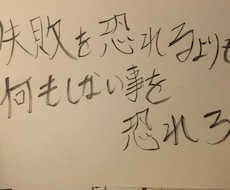 失敗を恐れるよりも
何もしない事を
恐れろ